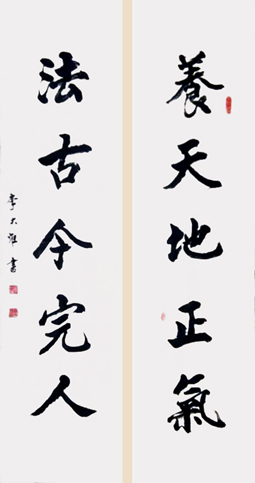 養天地正氣
法古今完人
李大維書